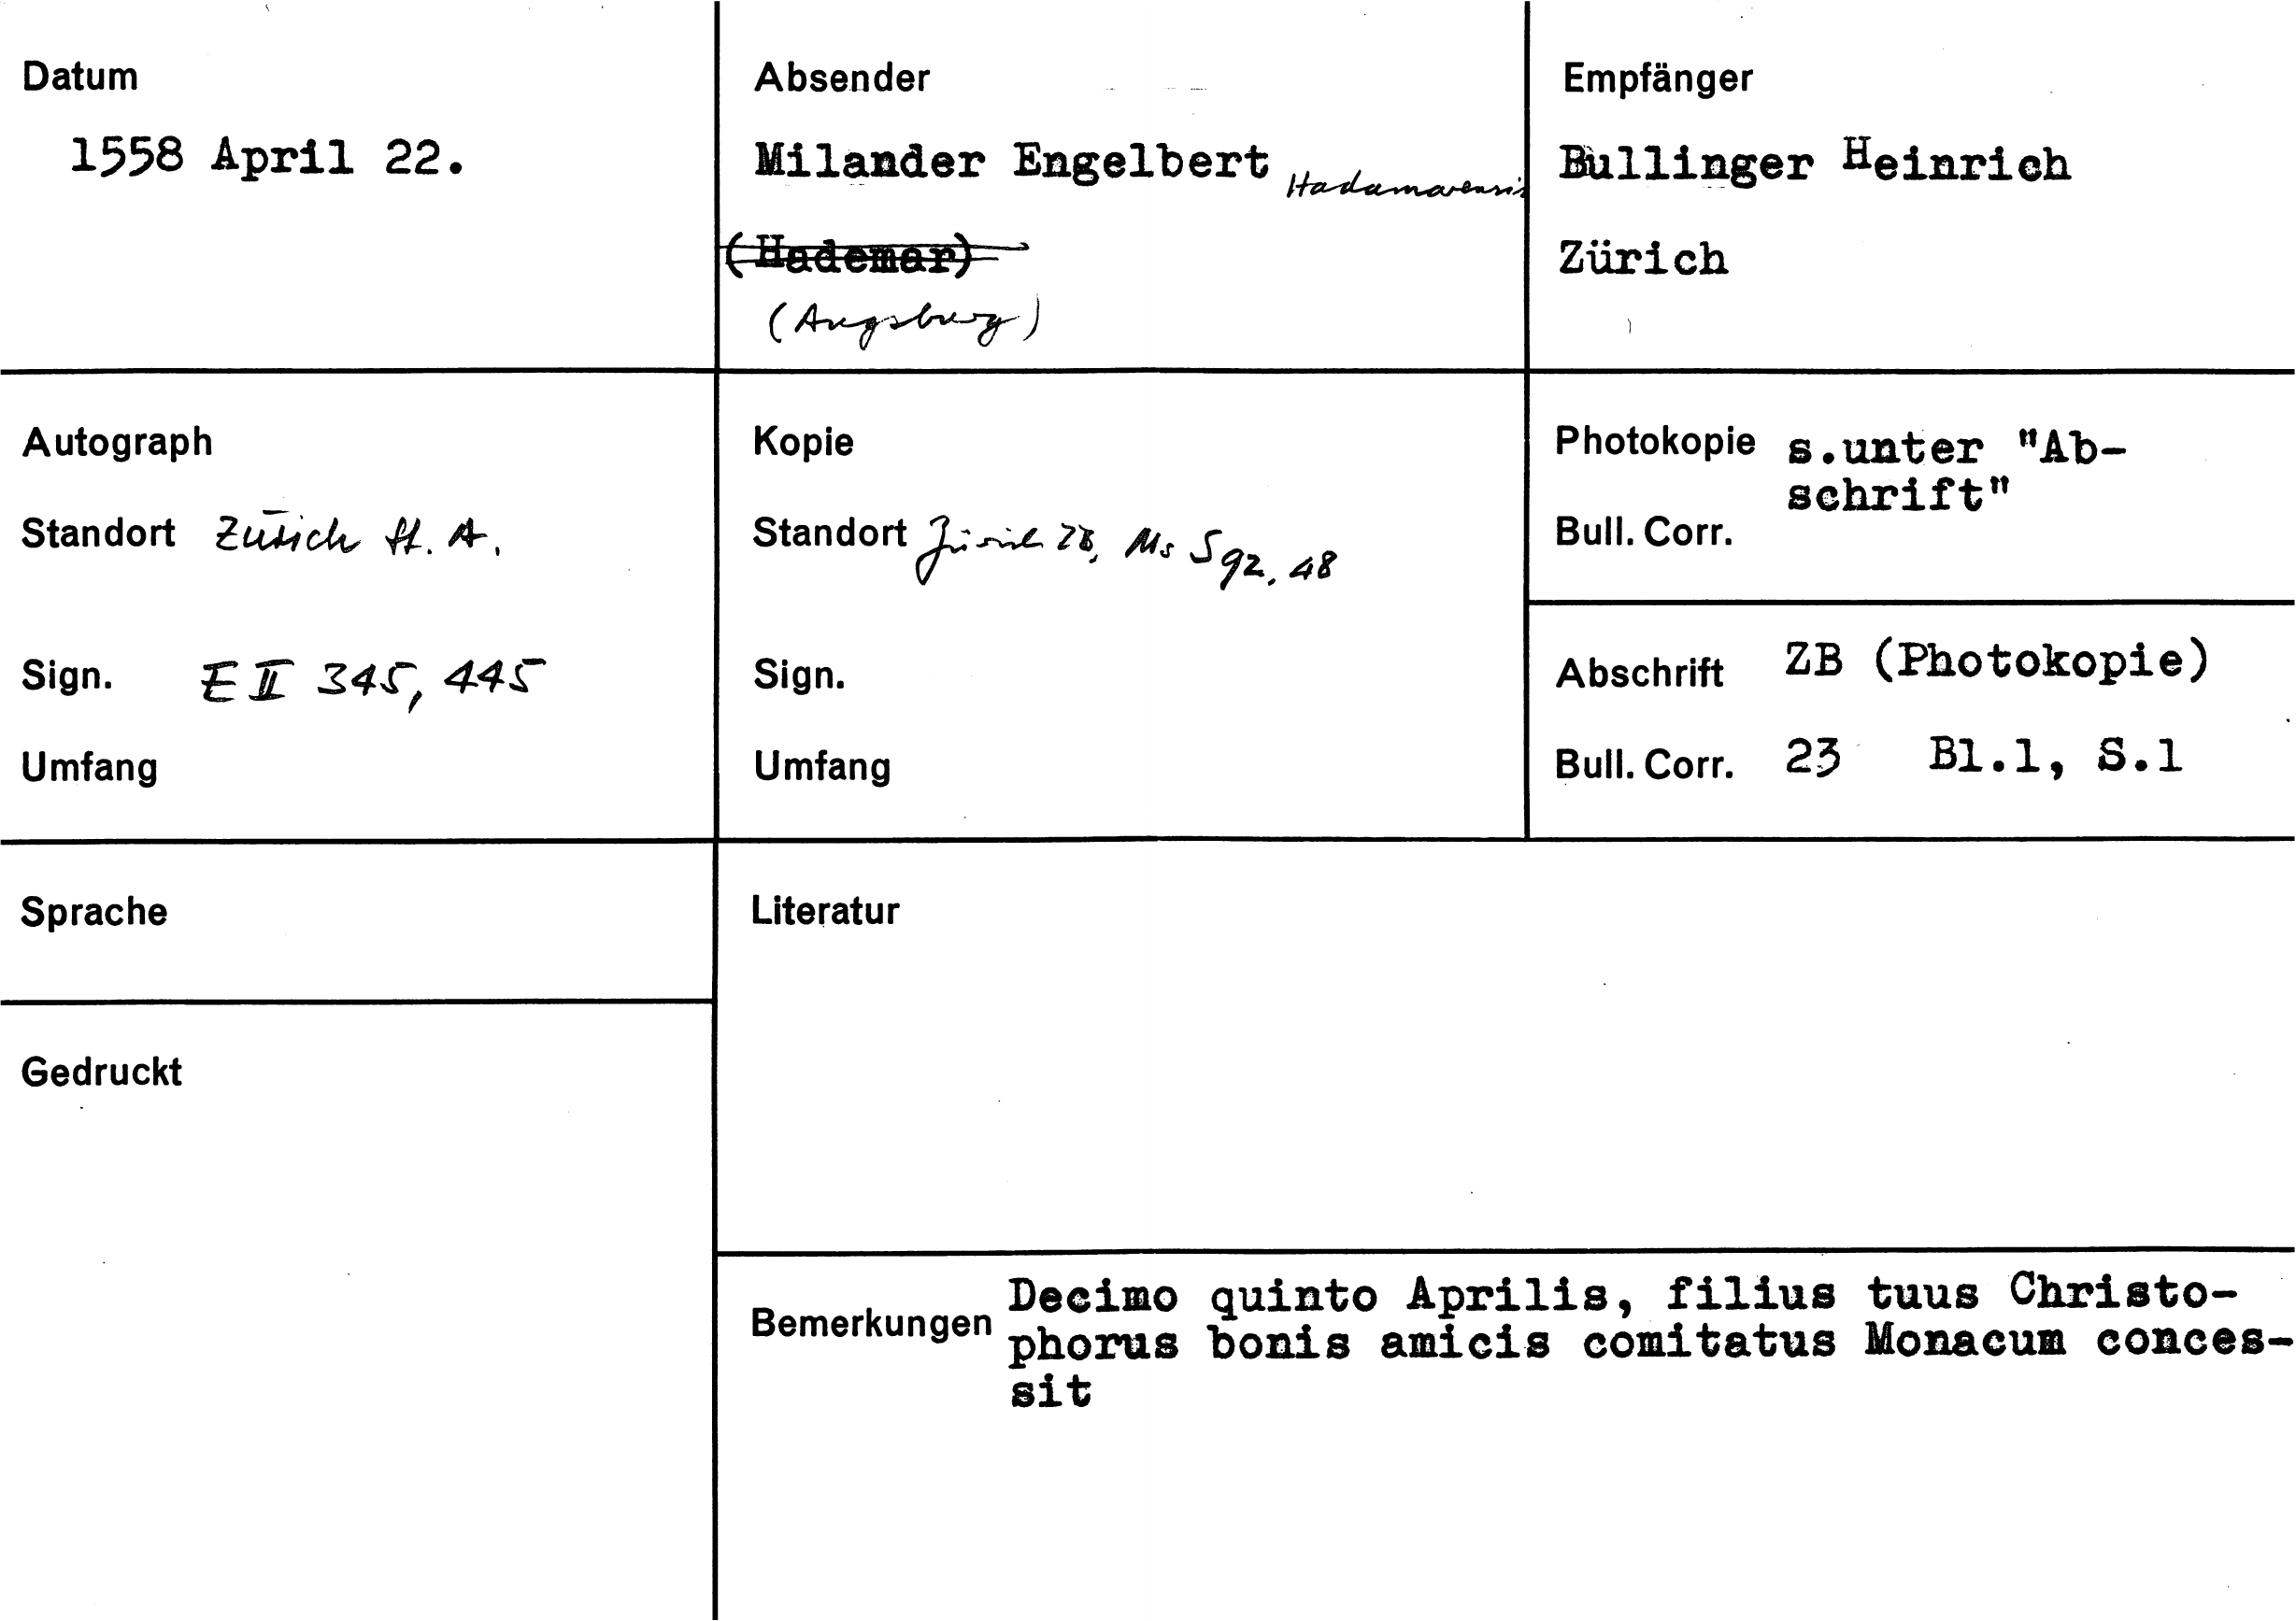 Datum
1558 April 22.
Absender
Milander Engelbert Hadamarensis
(Hademar)
(Augsburg)
Empfänger
Bullinger Heinrich
Zürich
Autograph
Standort Zürich St. A.
Sign. E II 345, 445
Umfang
Kopie
Standort Zürich ZB, Ms S 92, 48
Sign.
Umfang
Photokopie s.unter "Ab-
schrift"
Bull. Corr.
Abschrift ZB (Photokopie)
Bull. Corr. 23 Bl.1, S.1
Sprache
Literatur
Gedruckt
Bemerkungen Decimo quinto Aprilis, filius tuus Christo-
phorus bonis amicis comitatus Monacum conces-
sit